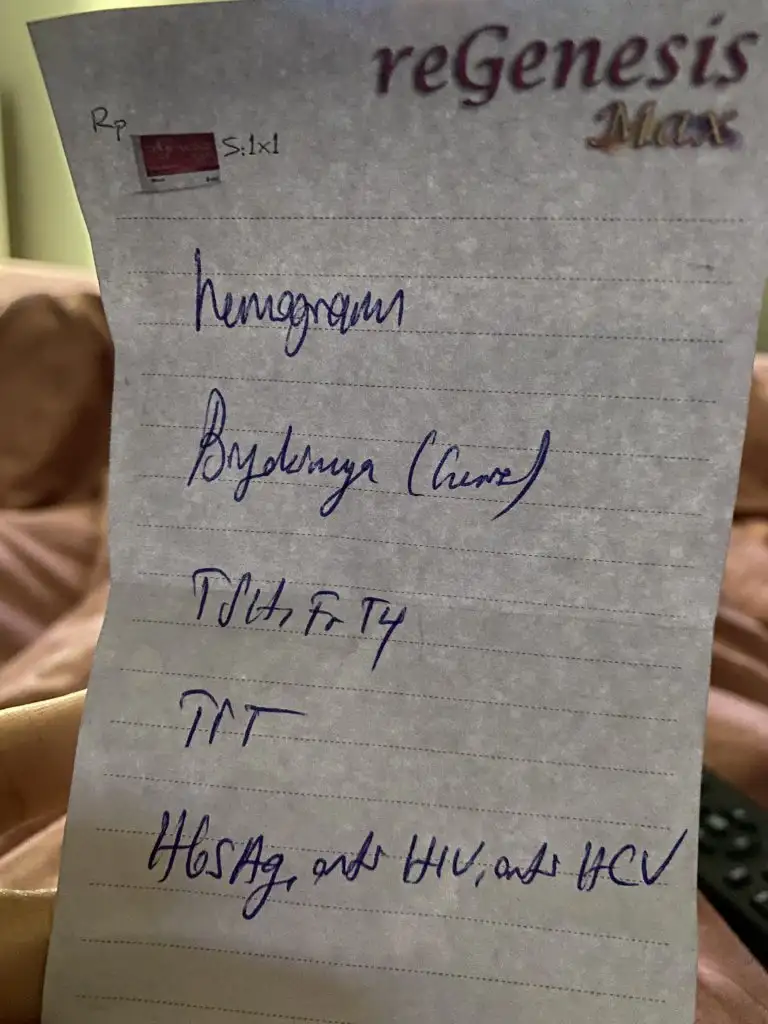 reGenesis
Max
Rp
S:1x1
hemogram
Biyokimya
TSH, Fr T4
TİT
HbsAg, anti HIV, anti HCV